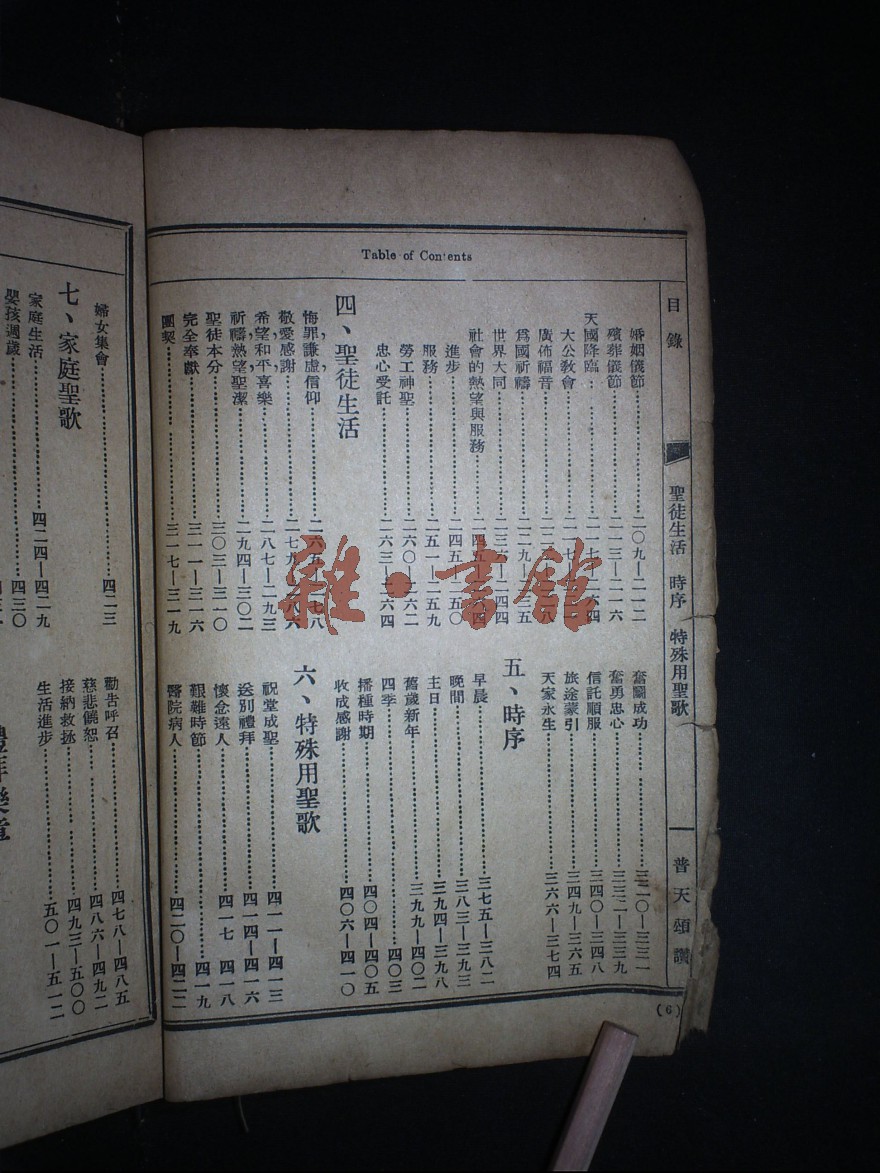 Table of Contents
目錄
聖徒生活 時序 特殊用聖歌
普天頌讚
(6)
婚姻儀節 二〇九—二一二
殯葬儀節 二一三—二一六
天國降臨
大公教會
廣佈福音
爲國祈禱
世界大同
社會的熱望與服務
進步
服務 二五一—二五九
勞工神聖
忠心受託
四、聖徒生活
悔罪,謙虛,信仰
敬愛,感謝
希望,和平,喜樂 二八七—二九三
祈禱,熱望,聖潔 二九四—三〇二
聖徒本分 三〇三—三一〇
完全奉獻 三一一—三一六
團契 三一七—三一九
奮鬭成功 三二〇—三三一
奮勇忠心 三三二—三三九
信託順服 三四〇—三四八
旅途蒙引 三四九—三六五
天家永生 三六六—三七四
五、時序
早晨 三七五—三八二
晚間 三八三—三九三
主日 三九四—三九八
舊歲新年 三九九—四〇二
四季 四〇三
播種時期 四〇四—四〇五
收成感謝 四〇六—四一〇
六、特殊用聖歌
祝堂成聖 四一一—四一三
送別禮拜 四一四—四一六
懷念遠人 四一七 四一八
艱難時節 四一九
醫院病人 四二〇—四二二
婦女集會 四二三
七、家庭聖歌
家庭生活 四二四—四二九
嬰孩週歲 四三〇
勸告呼召 四七八—四八五
慈悲饒恕 四八六—四九二
接納救拯 四九三—五〇〇
生活進步 五〇一—五一二
雜·書館